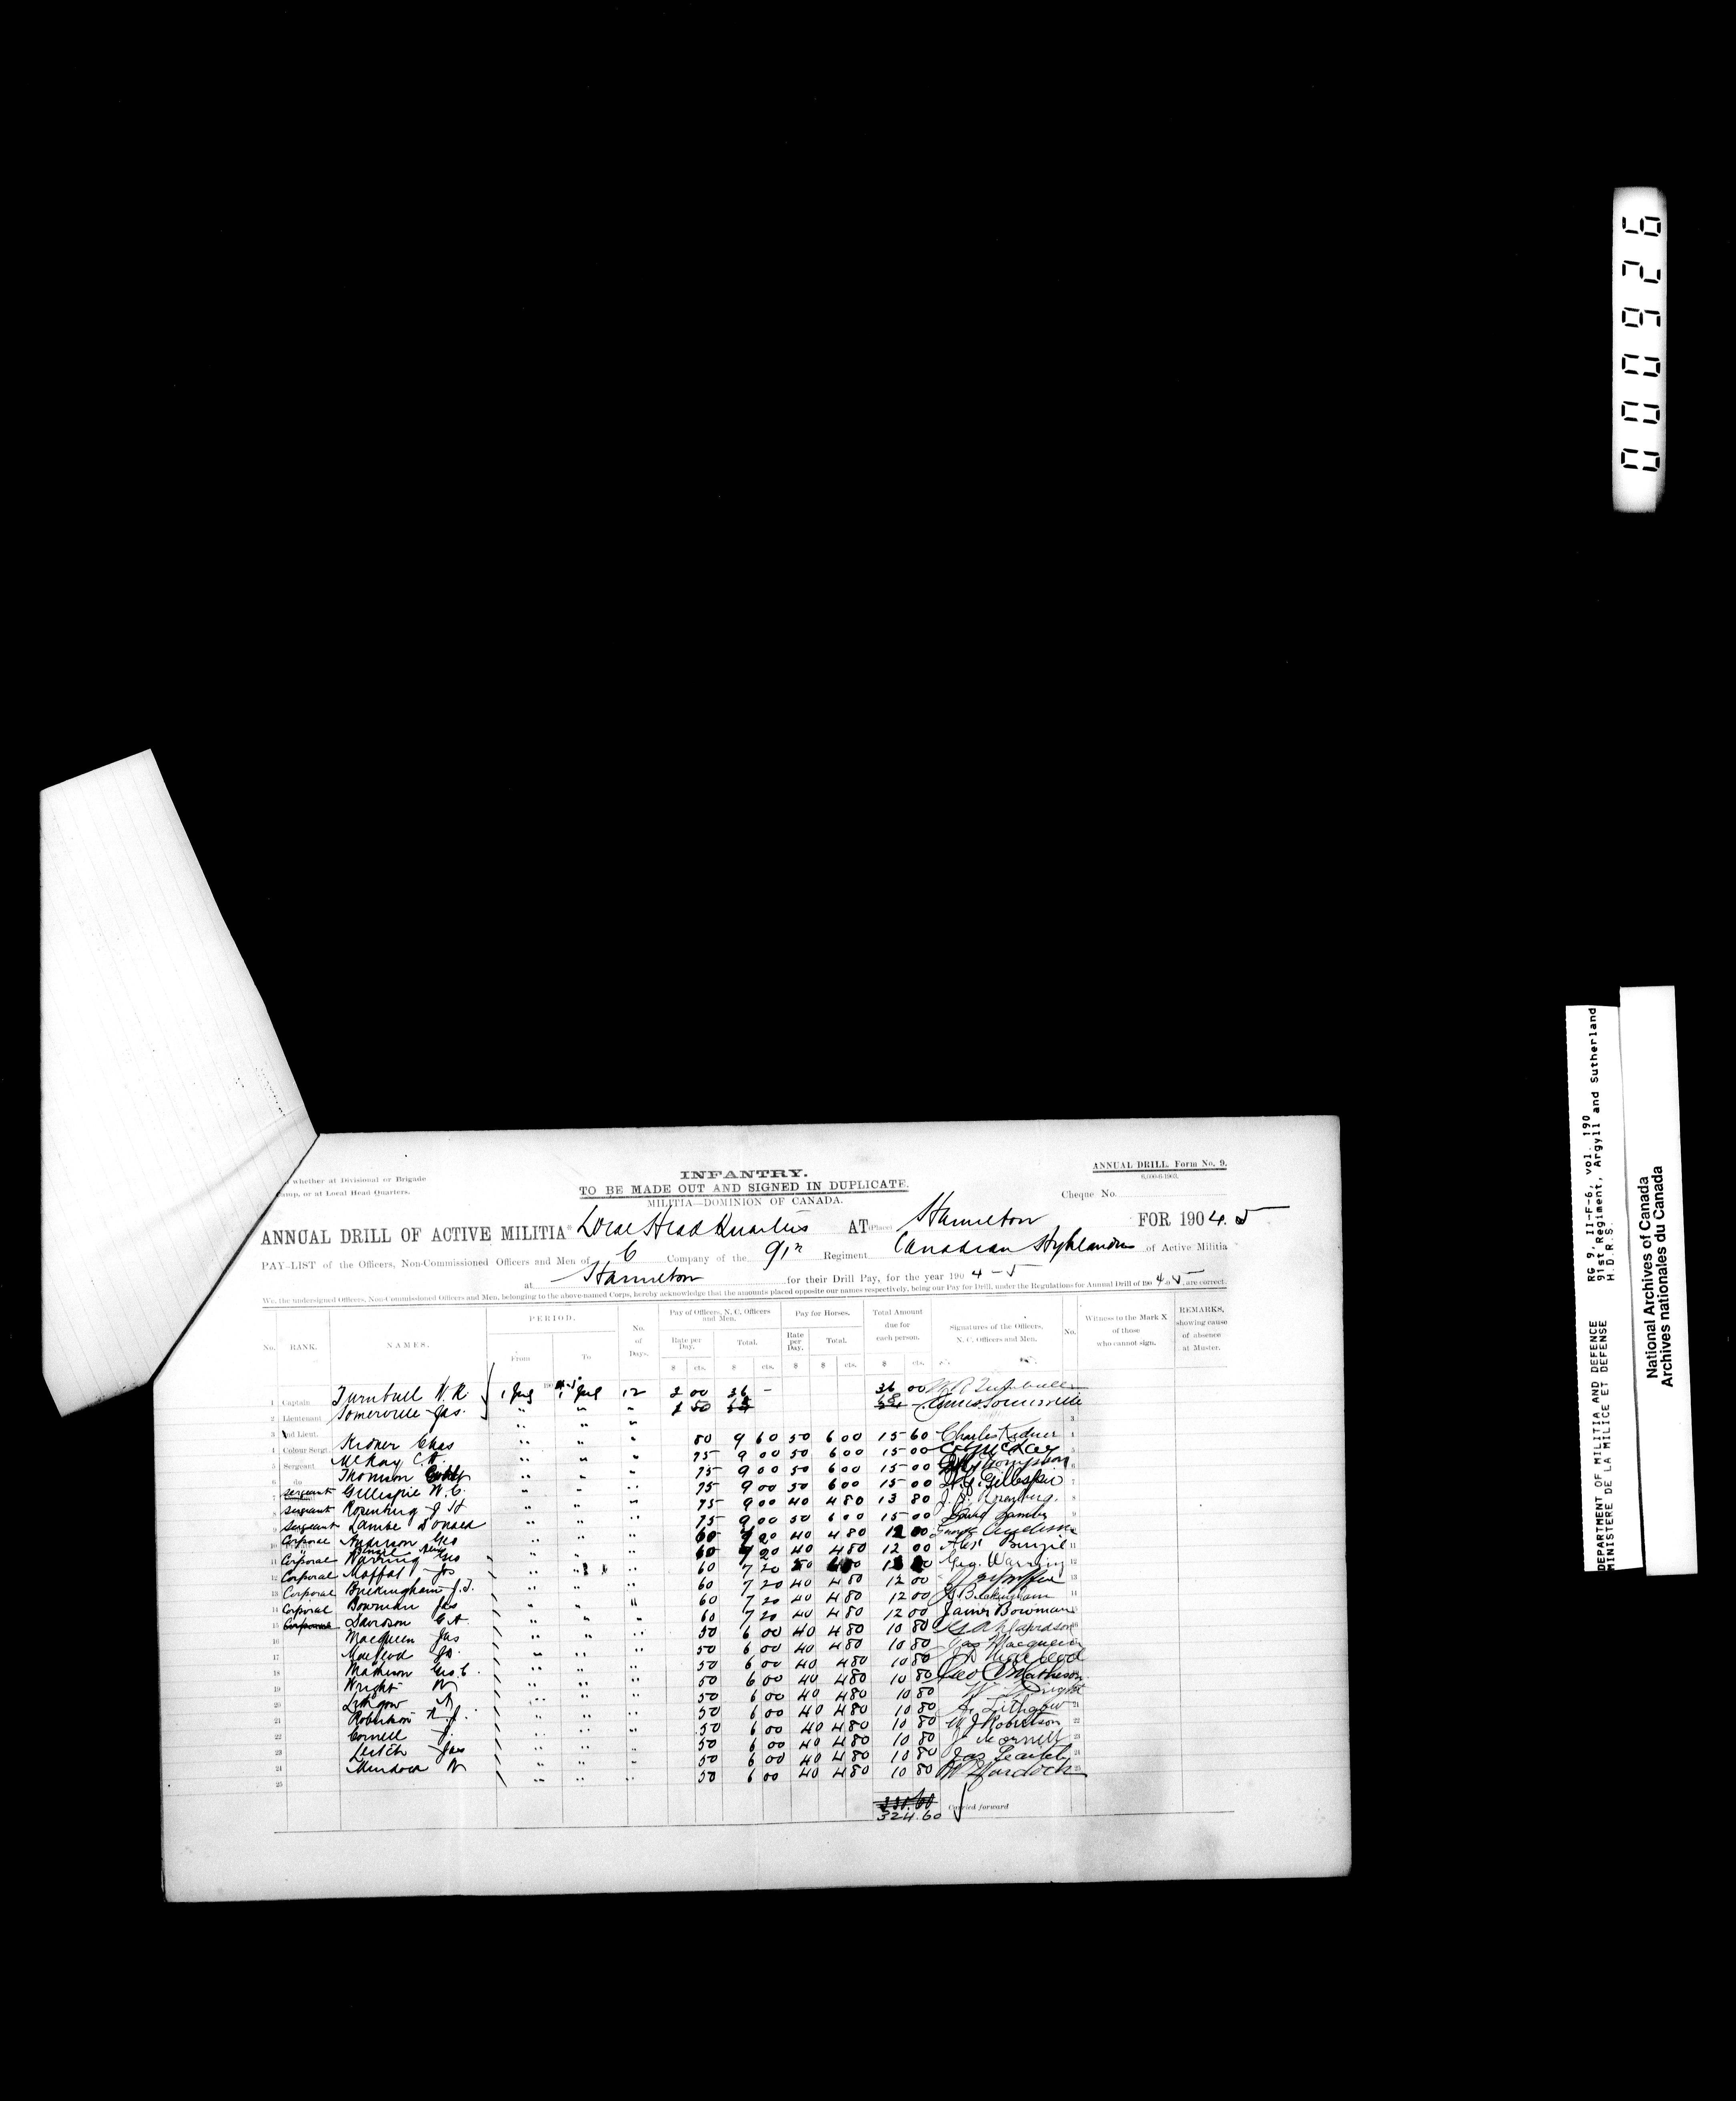 000926
DEPARTMENT OF MILITIA AND DEFENCE RG 9, II-F-6, vol. 190
MINISTERE DE LA MILICE ET DEFENSE 91st Regiment, Argyll and Sutherland
H.D.R.S.
National Archives of Canada
Archives nationales du Canada
whether at Divisional or Brigade
Camp, or at Local Head Quarters.
INFANTRY.
TO BE MADE OUT AND SIGNED IN DUPLICATE.
MILITIA—DOMINION OF CANADA.
ANNUAL DRILL. Form No. 9.
Cheque No.
ANNUAL DRILL OF ACTIVE MILITIA* Local Head Quarters AT (Place) Hamilton FOR 1904.5
PAY-LIST of the Officers, Non-Commissioned Officers and Men of C Company of the 91st Regiment Canadian Highlanders of Active Militia
at Hamilton for their Drill Pay, for the year 1904-5
We, the undersigned Officers, Non-Commissioned Officers and Men, belonging to the above-named Corps, hereby acknowledge that the amounts placed opposite our names respectively, being our Pay for Drill, under the Regulations for Annual Drill of 1904-5, are correct.
No. RANK. NAMES. PERIOD. From To No. of Days. Pay of Officers, N. C. Officers and Men. Rate per Day. Total. Pay for Horses. Rate per Day. Total. Total Amount due for each person. Signatures of the Officers, N. C. Officers and Men. No. Witness to the Mark X of those who cannot sign. REMARKS, showing cause of absence at Muster.
$ cts. $ cts. $ $ cts. $ cts.
1 Captain Turnbull W.R. 1 Jul 1 Jul 12 36 – 36 00
2 Lieutenant Somerville Jas. " " " James Somerville
3 2nd Lieut. " " "
4 Colour Sergt. Kidner Chas " " " 80 9 60 50 6 00 15 60 Charles Kidner
5 Sergeant McKay C.A. " " " 75 9 00 50 6 00 15 00
6 do Thomson " " " 75 9 00 50 6 00 15 00
7 Sergeant Gillespie W.C. " " " 75 9 00 50 6 00 15 00 W.C. Gillespie
8 Sergeant " " " 75 9 00 40 4 80 13 80
9 Sergeant Lambe Donald " " " 75 9 00 50 6 00 15 00
10 Corporal Anderson Geo " " " 60 7 20 40 4 80 12 00
" " " 60 7 20 40 4 80 12 00
11 Corporal Warring Geo " " " 60 7 20 Geo. Warring
12 Corporal Moffat Jas " " " 60 7 20 40 4 80 12 00
13 Corporal Buckingham J.T. " " " 60 7 20 40 4 80 12 00
14 Corporal Bowman Jas " " " 60 7 20 40 4 80 12 00 James Bowman
15 Davidson G.A. " " " 50 6 00 40 4 80 10 80
16 Macqueen Jas " " " 50 6 00 40 4 80 10 80 Jas Macqueen
17 MacLeod " " " 50 6 00 40 4 80 10 80
18 Matheson Geo. C. " " " 50 6 00 40 4 80 10 80 Geo C Matheson
19 Wright W " " " 50 6 00 40 4 80 10 80
20 Lithgow A " " " 50 6 00 40 4 80 10 80 A. Lithgow
21 Robertson W.J. " " " 50 6 00 40 4 80 10 80 W J Robertson
22 Cornell J. " " " 50 6 00 40 4 80 10 80
23 Leitch Jas " " " 50 6 00 40 4 80 10 80 Jas Leaitch
24 Murdoch W " " " 50 6 00 40 4 80 10 80 W Murdoch
25
Carried forward
324.60